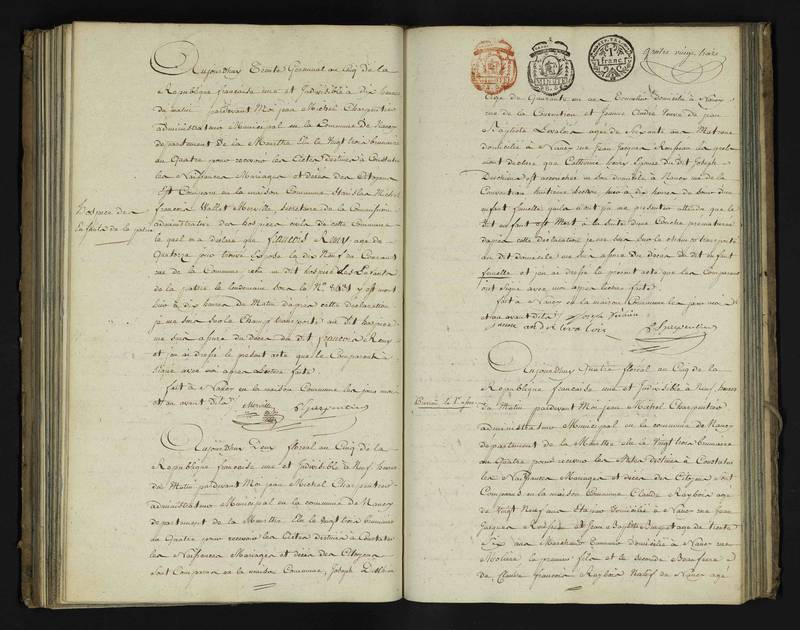 Aujourdhuy Trente Germinal an Cinq de la
Republique française une et Indivisible à dix heures
du matin pardevant Moi jean Michel Charpentier
administrateur Municipal en la Commune De Nancy
departement de la Meurthe Elu le Vingt trois brumaire
an Quatre pour recevoir les Actes destinés à Constater
les Naissances Mariages et décès des Citoyens
Est Comparu en la maison Commune Stanislas Michel
françois Vallet Merville, secretaire de la Commission
administrative des hospices civils de cette Commune
le quel m'a déclaré que françois Remy age de
Quatorze jours trouvé Exposé le dix Neuf au Courant
rue de la Commune reçu au dit hospice Les Enfants
de la patrie le lendemain sous le No. 8181 y est mort
hier à dix heures du Matin d'après cette déclaration
je me suis sur le Champ transporté au dit hospice
me suis assuré du décès du dit françois Remy
et j'en ai dressé le présent acte que le Comparant à
signé avec moi après lecture faite.
fait à Nancy en la maison Commune les jour mois
et an avant dits Merville Charpentier
hospice des
enfants de la patrie
Aujourdhuy Deux floréal an Cinq de la
Republique française une et Indivisible à Neuf heures
du Matin pardevant Moi jean Michel Charpentier
administrateur Municipal en la commune de Nancy
departement de la Meurthe Elu le Vingt trois brumaire
an Quatre pour recevoir les Actes destinés à Constater
les Naissances Mariages et décès des Citoyens
Sont Comparus en la maison Commune, Joseph
1
franc
quatre vingt trois
age de Quarante un an domicilié à Nancy
rue de la Convention et jeanne veuve de jean
Baptiste age de Soixante ans Matrone
domiciliée à Nancy rue Jean Jacques Rousseau les quels
m'ont déclaré que Catherine épouse du dit Joseph
est accouchée en son domicile à Nancy rue de la
Convention hier à dix heures du Soir d'un
enfant femelle qu'ils n'ont pu me présenter attendu que le
dit enfant est Mort à la suite d'une Couche prématurée
d'après cette déclaration je me suis sur le champ transporté
au dit domicile me suis assuré du décès du dit enfant
femelle et j'en ai dressé le présent acte que les Comparants
ont signé avec moi après lecture faite.
fait à Nancy en la maison Commune les jour mois
et an avant dits Joseph
Charpentier
Aujourdhuy Quatre floréal an Cinq de la
Republique française une et Indivisible à Neuf heures
du Matin pardevant Moi jean Michel Charpentier
administrateur Municipal en la commune de Nancy
departement de la Meurthe Elu le Vingt trois brumaire
an Quatre pour recevoir les Actes destinés à Constater
les Naissances Mariages et décès des Citoyens sont
Comparus en la maison Commune Claude Raybois age
de Vingt Neuf ans domicilié à Nancy rue Jean
Jacques Rousseau et Jean Baptiste age de trente
Six ans Marchand domicilié à Nancy rue
Moliere le premier fils et le second Beaufrere
de Claude françois Raybois Natif de Nancy agé